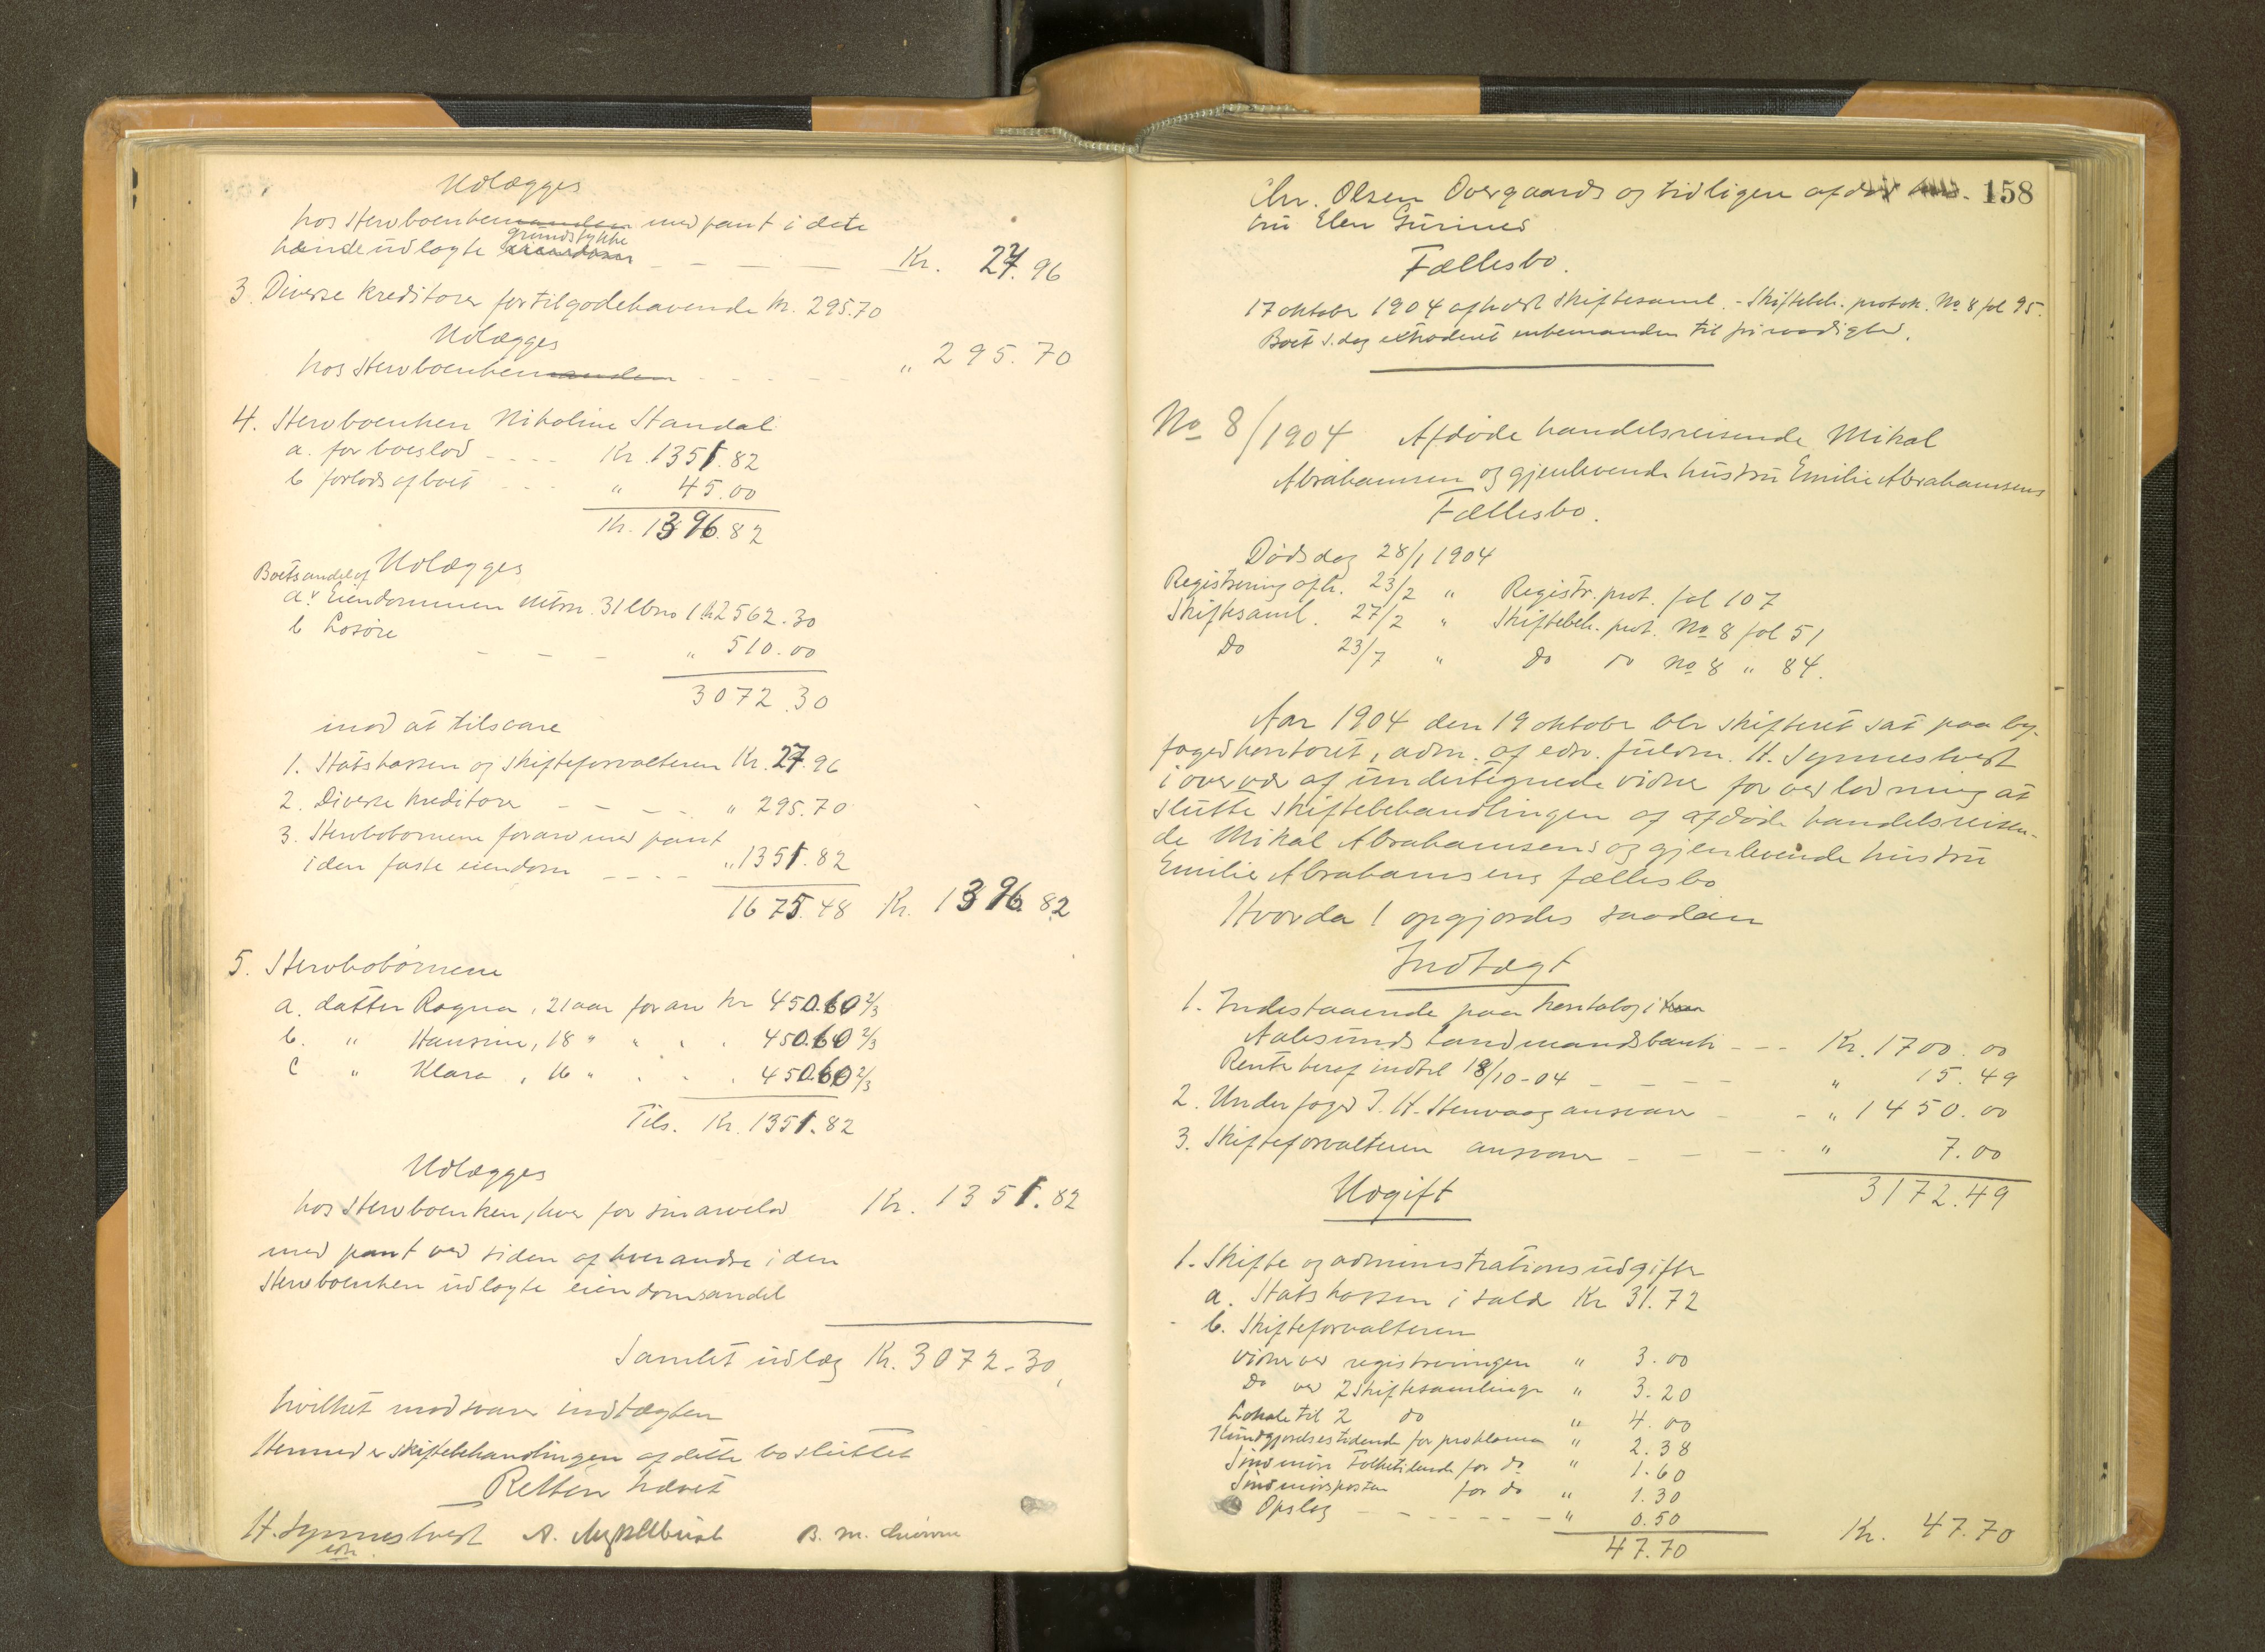 Udlægges
hos Stervboenken med pant i dette
hende udlagte grundstykke Kr. 27.96
3. Diverse kreditorer for tilgodehavende kr. 295.70
Udlægges
hos Stervboenken - - - " 295.70
4. Stervboenken Nikoline Standal
a. for boeslod - - - - Kr. 1351.82
b forlods af boet - - - " 45.00
Kr. 1396.82
Udlægges
Boets andel af
a. Eiendommen Mtrn. 31 lbno 1 Kr 2562.30
b Løsøre - - - " 510.00
3072.30
mod at tilsvare
1. Statskassen og skifteforvalteren Kr. 27.96
2. Diverse kreditorer - - - - " 295.70
3. Stervbobørnene for arv med pant
i den faste eiendom - - - - " 1351.82
1675.48 Kr. 1396.82
5. Stervbobørnene
a. datter Ragna, 21 aar for arv kr 450.60 2/3
b. " Hansine, 18 " " " . 450.60 2/3
c " Klara, 16 " . . . 450.60 2/3
Tils. Kr. 1351.82
Udlægges
hos Stervboenken, hver for sin arvelod Kr. 1351.82
med pant ved siden af hverandre i den
Stervboenken udlagte eiendomsandel
Samlet udlæg Kr. 3072.30,
hvilket modsvarer indtægten
Hermed er skiftebehandlingen af dette bo sluttet
Retten hævet
H. Synnestvedt
edv.
B. M.
158
Chr. Olsen Overgaards og tidligere afdøde hus-
tru Elen Gurines
Fællesbo.
17 oktober 1904 afholdt skiftesaml. - Skiftebeh. protok. No 8 fol 95.
Boet s. dag extraderet enkemanden til fri raadighed.
No 8/1904 Afdøde handelsreisende Mikal
Abrahamsen og gjenlevende hustru Emilie Abrahamsens
Fællesbo.
Dødsdag 28/1 1904
Registrering afh. 23/2 " Registr. prot. fol 107
Skiftesaml. 27/2 " Skiftebeh. prot. No 8 fol 51
Do 23/7 " Do do No 8 " 84.
Aar 1904 den 19 oktober blev skifteret sat paa by-
fogedkontoret, adm. af edsv. fuldm. H. Synnestvedt
i overvær af undertegnede vidner for ved lodning at
slutte skiftebehandlingen af afdøde handelsreisen-
de Mikal Abrahamsens og gjenlevende hustru
Emilie Abrahamsens fællesbo
Hvorda ! opgjordes saadan
Indtægt
1. Indestaaende paa kontobog i
Aalesunds Landmandsbank - - - Kr. 1700.00
Rente heraf indtil 18/10-04 - - - - " 15.49
2. Underfoged J. H. Stenvaag ansvarer - - " 1450.00
3. Skifteforvalteren ansvarer - - - " 7.00
3172.49
Udgift
1. Skifte og administrationsudgifter
a. Statskassen i sald Kr 31.72
b. Skifteforvalteren
Vidner ved registreringen " 3.00
Do ved 2 skiftesamlinger " 3.20
Lokale til 2 do " 4.00
Kundgjørelsestidende for proklama " 2.38
Søndmøre Folketidende for do " 1.60
Søndmørsposten for do " 1.30
Opslag - - - - - - " 0.50
47.70 Kr. 47.70